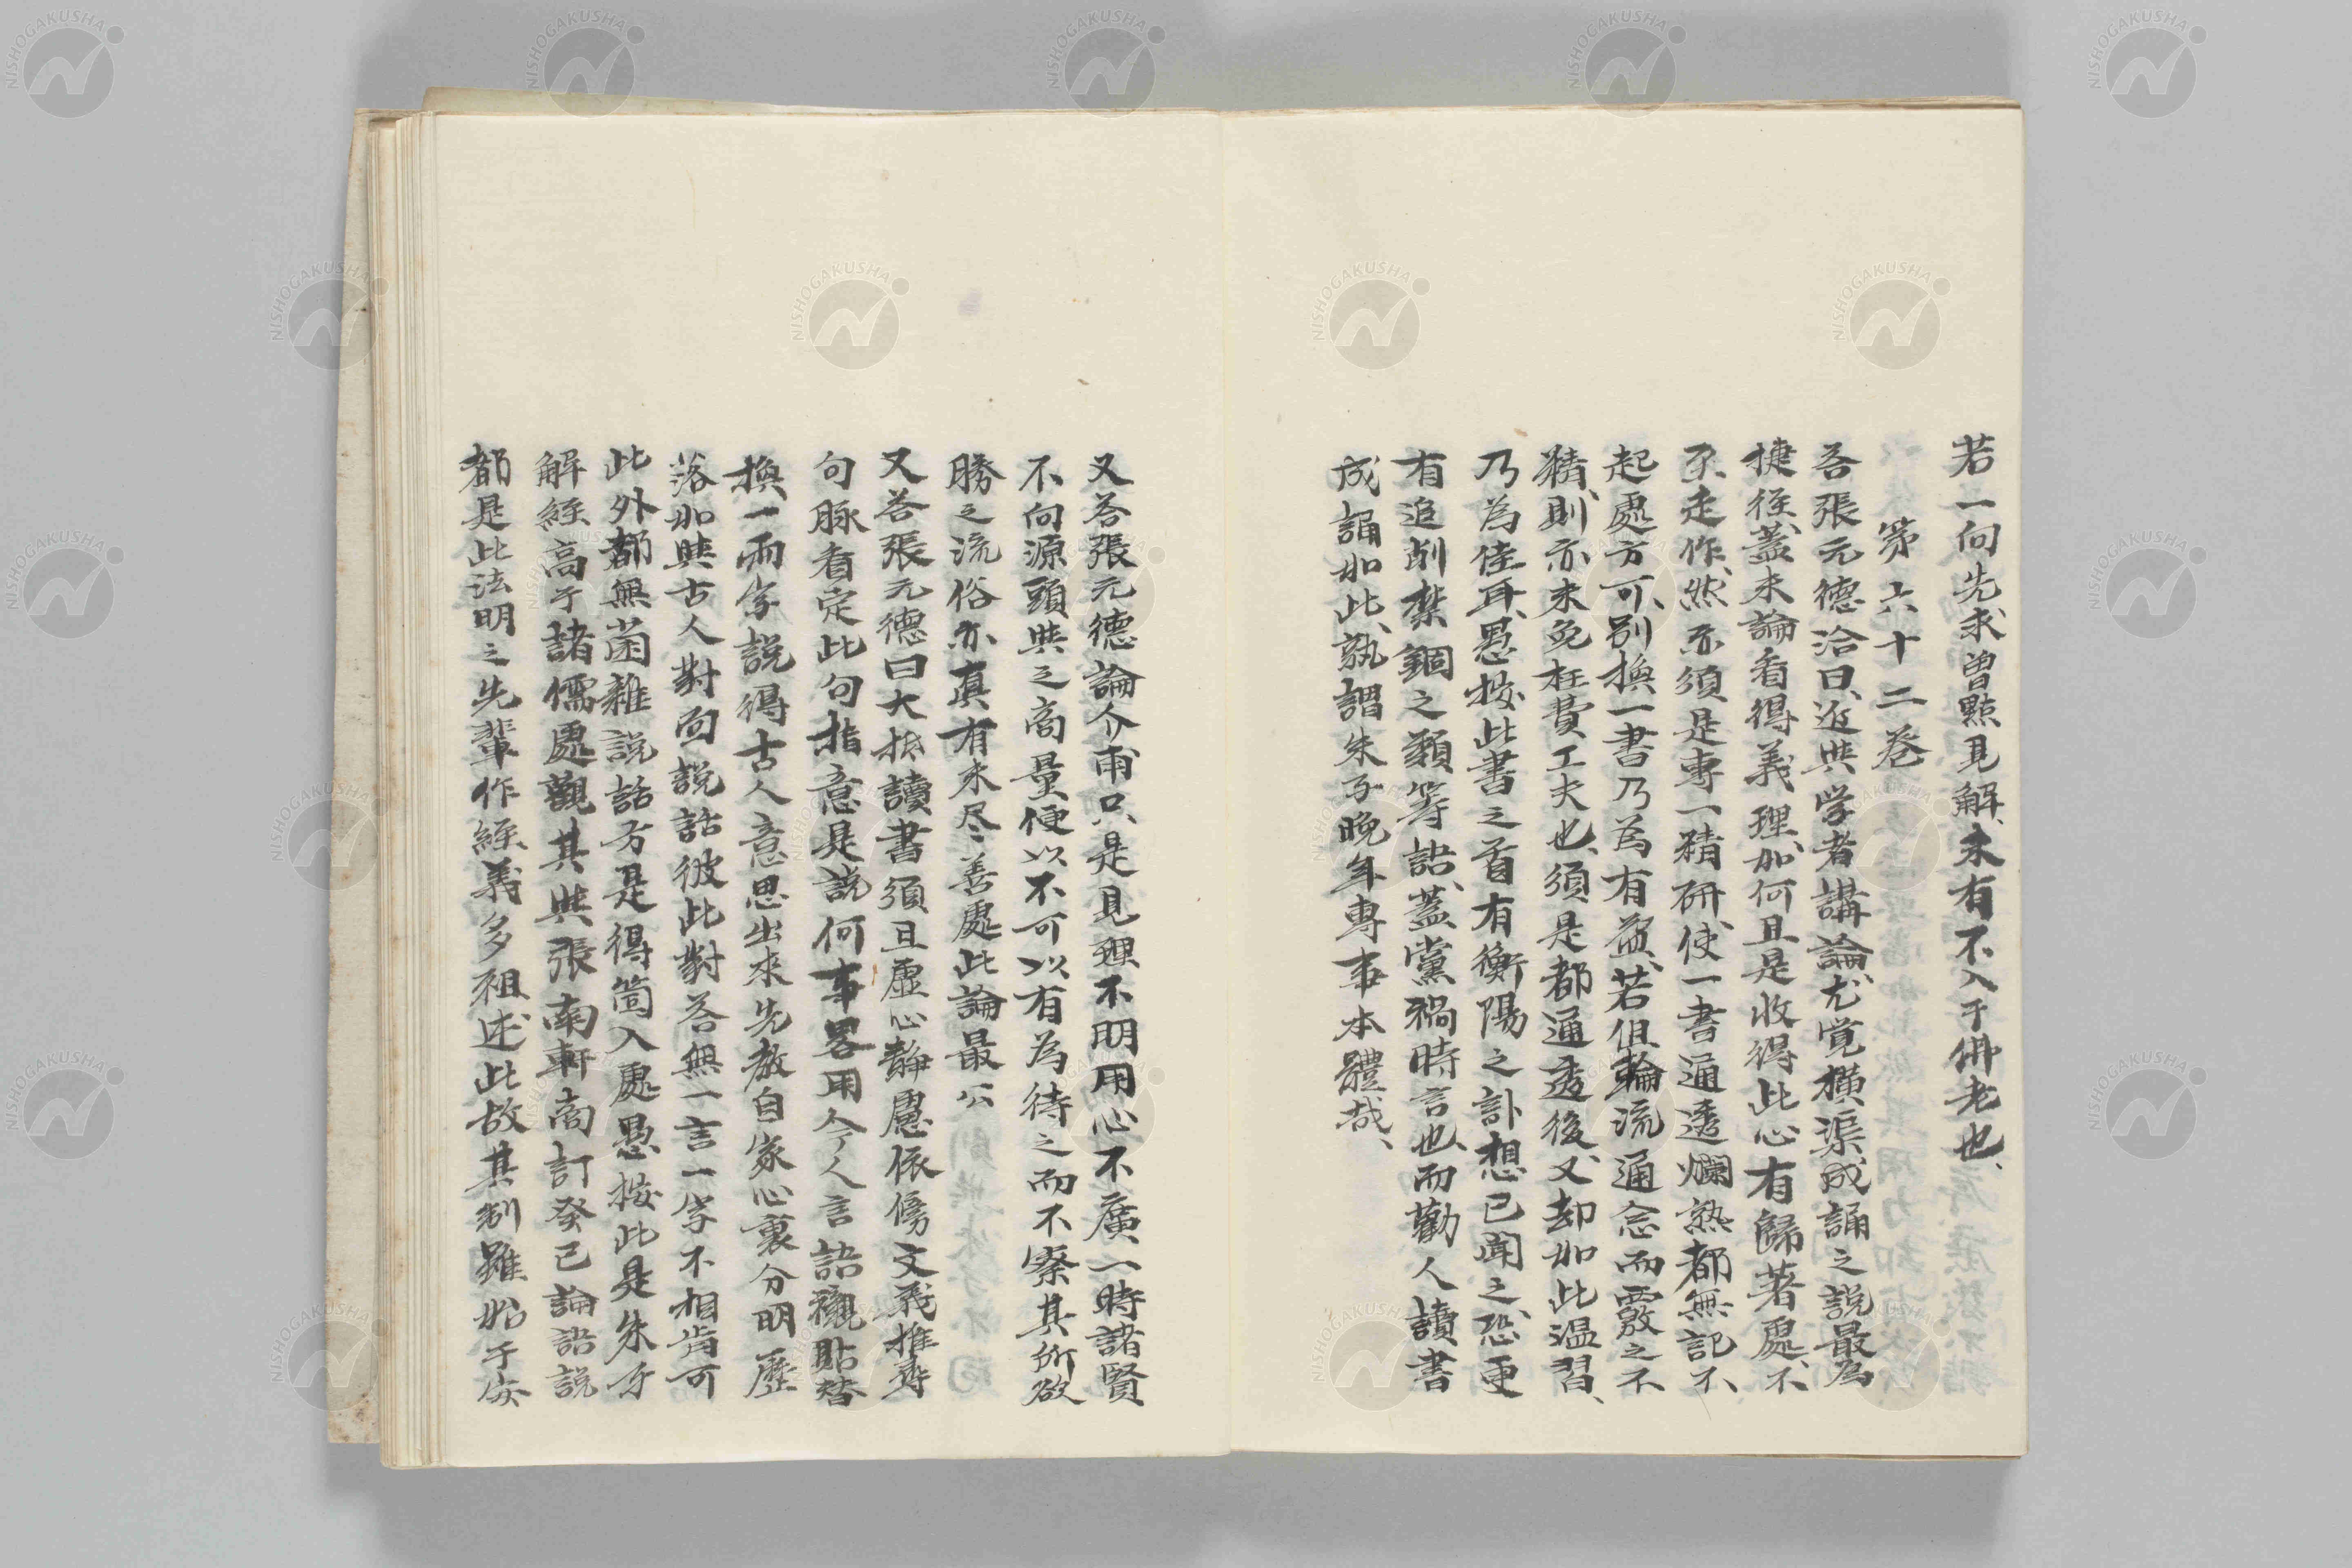 若一向先求曽㸃見解、未有不入于佛老也、
第六十二卷
答張元德洽曰、近與学者講論、尤覚橫渠成誦之説最為
捷徑、蓋未論看得義理、如何且是收得此心有歸著處、不、
不、走作、然亦須是專一精研、使一書通透爛熟都無記不、
起處方可、別換一書乃為有益、若但輪流通念而覈之不
精、則亦未免枉費工夫也、須是都通透後、又却如此温習、
乃為佳耳、愚按此書之首有衡陽之訃想已聞之、恐更
有追削禁錮之類等語、蓋黨禍時言也、而勸人讀書
成誦如此、孰謂朱子晩年專事本體哉、
又答張元德論介甫只是見理不明用心不廣一時諸賢
不向源頭與之商量便以不可以有為待之而不察其所欲
勝之流俗亦真有未尽善處此論最公
又答張元德曰大抵讀書須且虚心静慮依傍文義推尋
句脉看定此句指意是説何事畧用今人言語襯貼替
換一兩字説得古人意思出來先教自家心裏分明歷
落如與古人對面説話彼此對答無一言一字不相肯可
此外都無閑雜説話方是得箇入處愚按此是朱子
解經高于諸儒處觀其與張南軒商訂癸已論語説
都是此法明之先輩作經義多祖述此故其制雖始于安